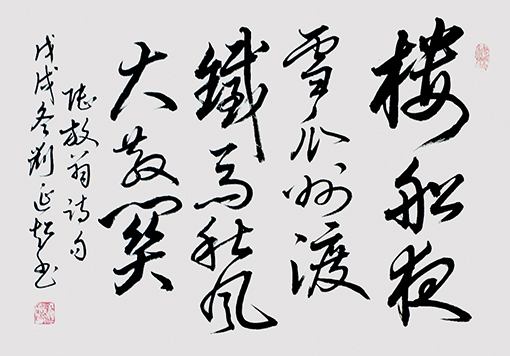 楼船夜
雪瓜州渡
鐵马秋风
大散関
陸放翁诗句
戊戌冬刘延超书